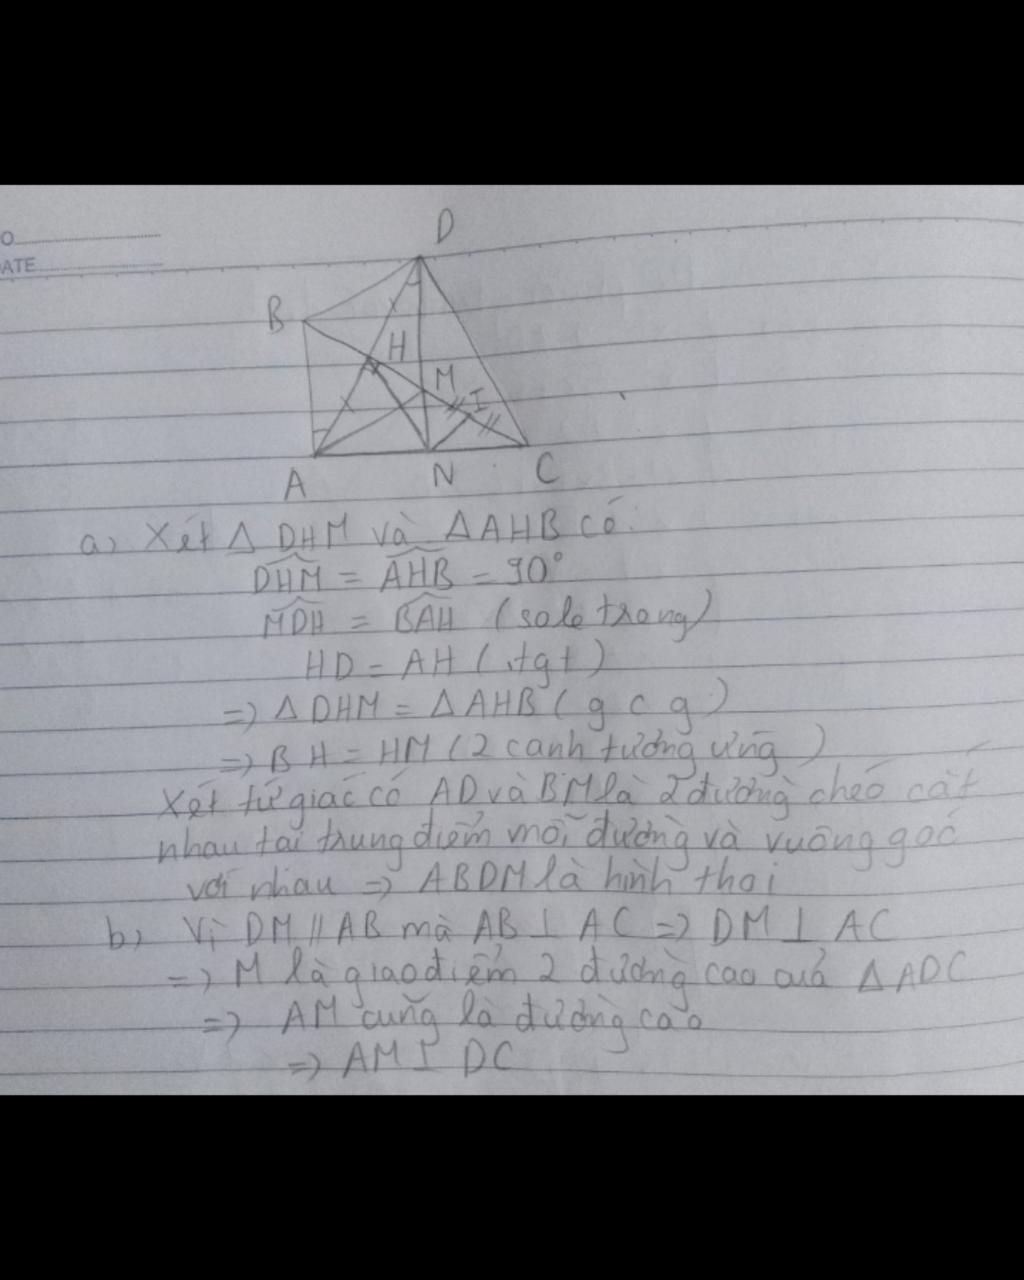 O
ATE
D
B
H
M
I
A
N
C
a, Xét Δ DHM và ΔAHB có:
DHM = AHB = 90°
MDH = BAH (sole trong)
HD = AH ( tgt )
=> Δ DHM = Δ AHB ( g c g )
=> BH = HM (2 cạnh tương ứng )
Xét tứ giác có AD và BM là 2 đường chéo cắt
nhau tại trung điểm mỗi đường và vuông góc
với nhau => ABDM là hình thoi
b, Vì DM // AB mà AB ⊥ AC => DM ⊥ AC
=> M là giao điểm 2 đường cao của ΔADC
=> AM cũng là đường cao
=> AM ⊥ DC